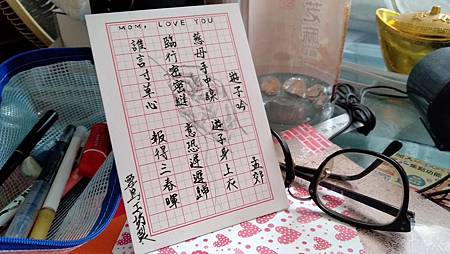 MOM, LOVE YOU
遊子吟
孟郊
慈母手中線 遊子身上衣
臨行密密縫 意恐遲遲歸
誰言寸草心 報得三春暉